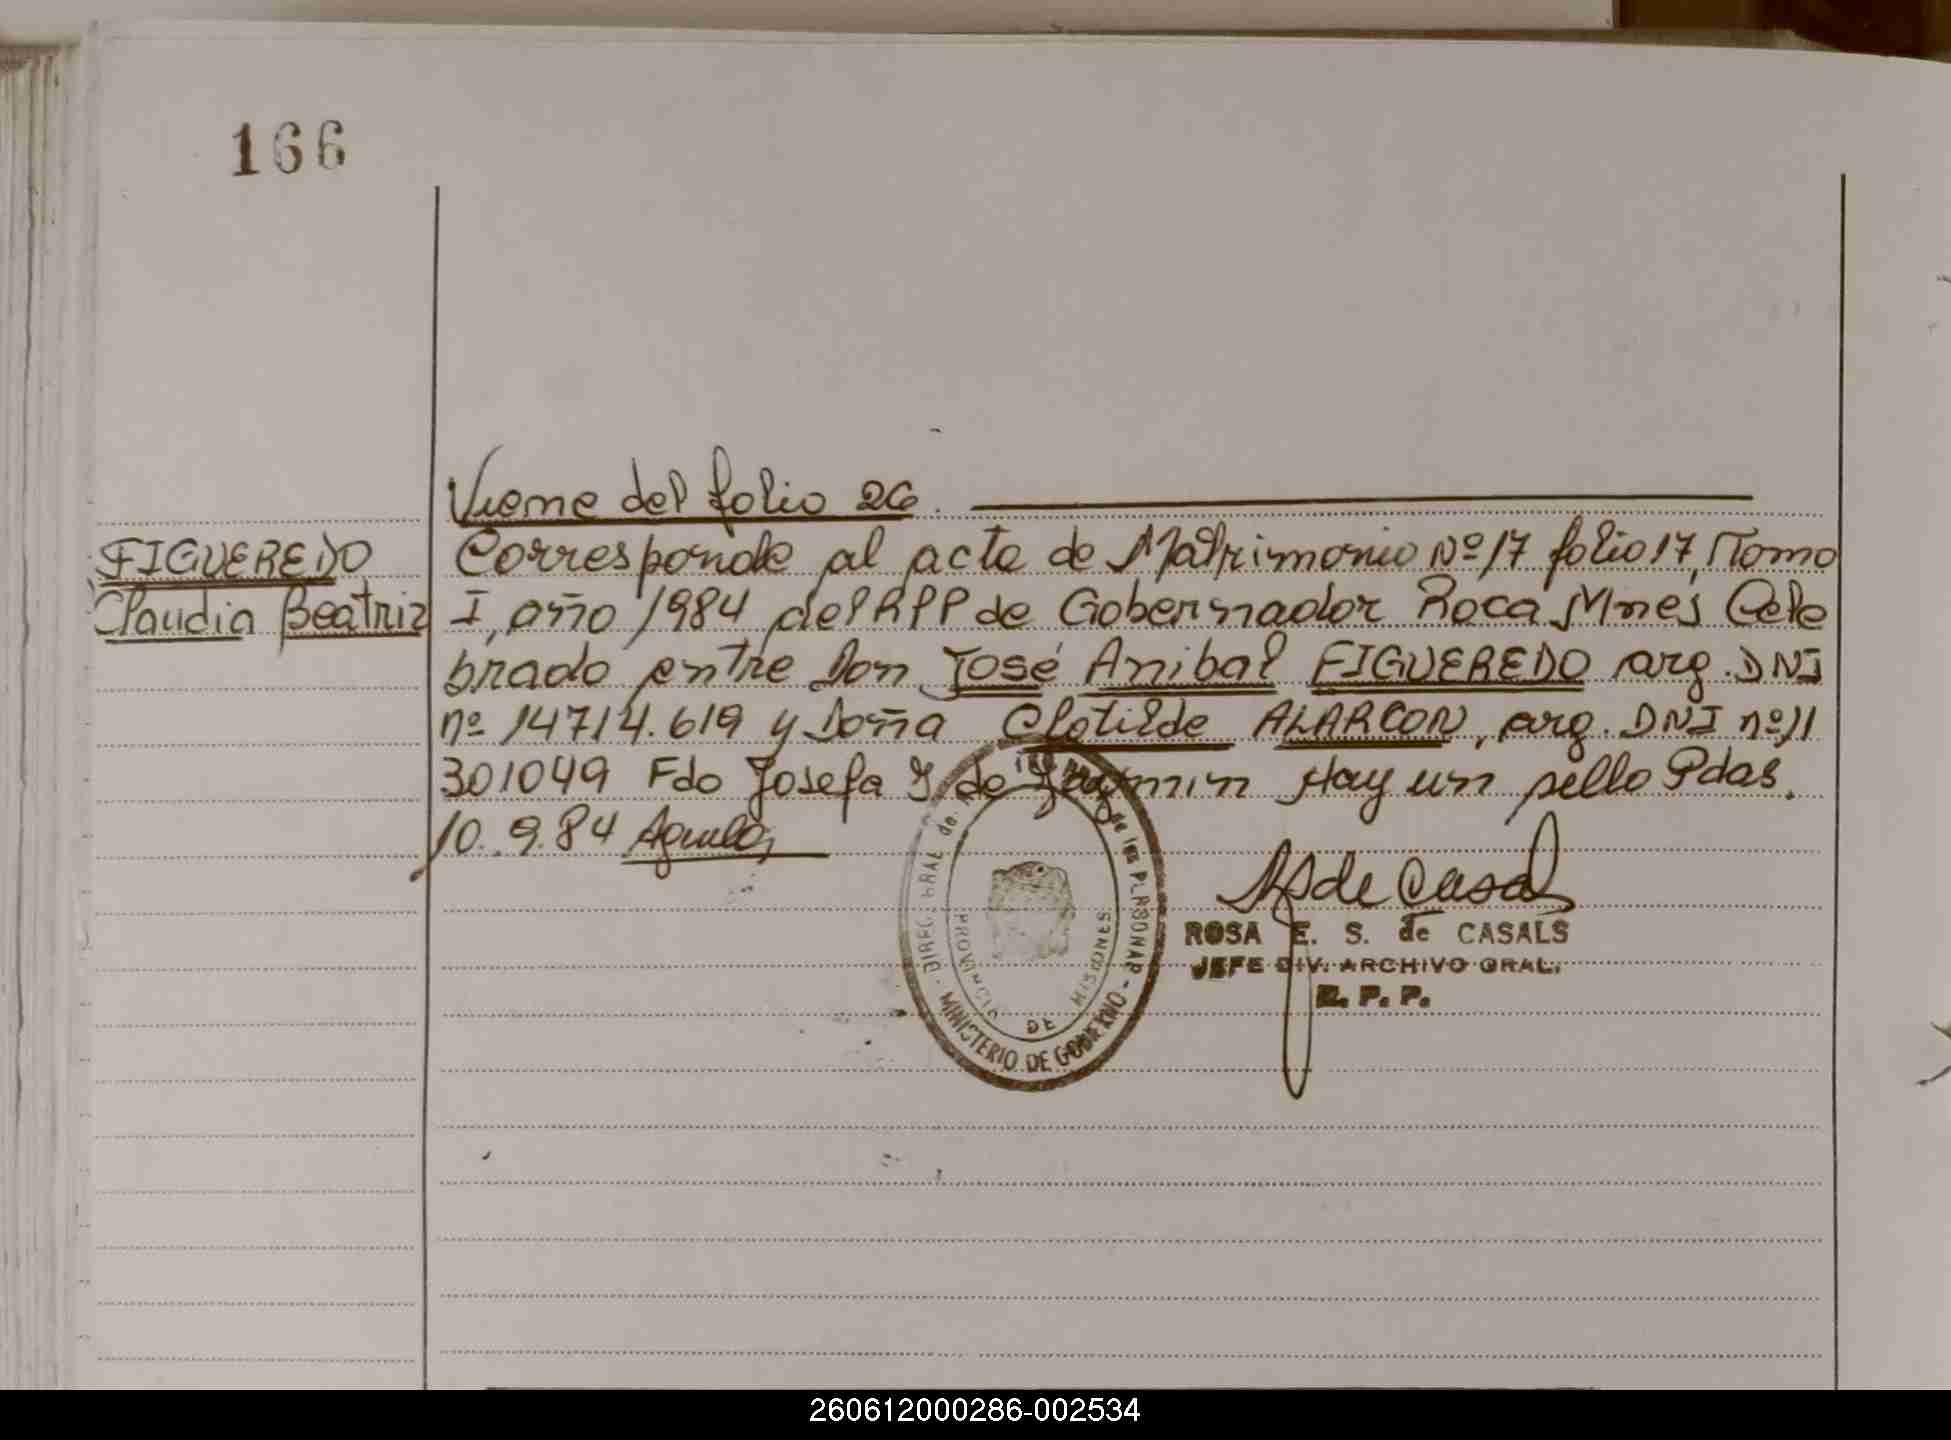 166
Viene del folio 26.
FIGUEREDO
Claudia Beatriz
Corresponde al acta de Matrimonio Nº 17 folio 17, Tomo
I, año 1984 del RPP de Gobernador Roca Mnes Cele
brado entre Don José Anibal FIGUEREDO arg. DNI
nº 14714.619 y Doña Clotilde ALARCON, arg. DNI nº 11
301049 Fdo Josefa J de Hay un sello Pdas.
10.9.84
de Casals
ROSA E. S. de CASALS
JEFE DIV. ARCHIVO GRAL.
R. P. P.
de las PERSONAS
MINISTERIO DE GOBIERNO
PROVINCIA DE MISIONES
260612000286-002534